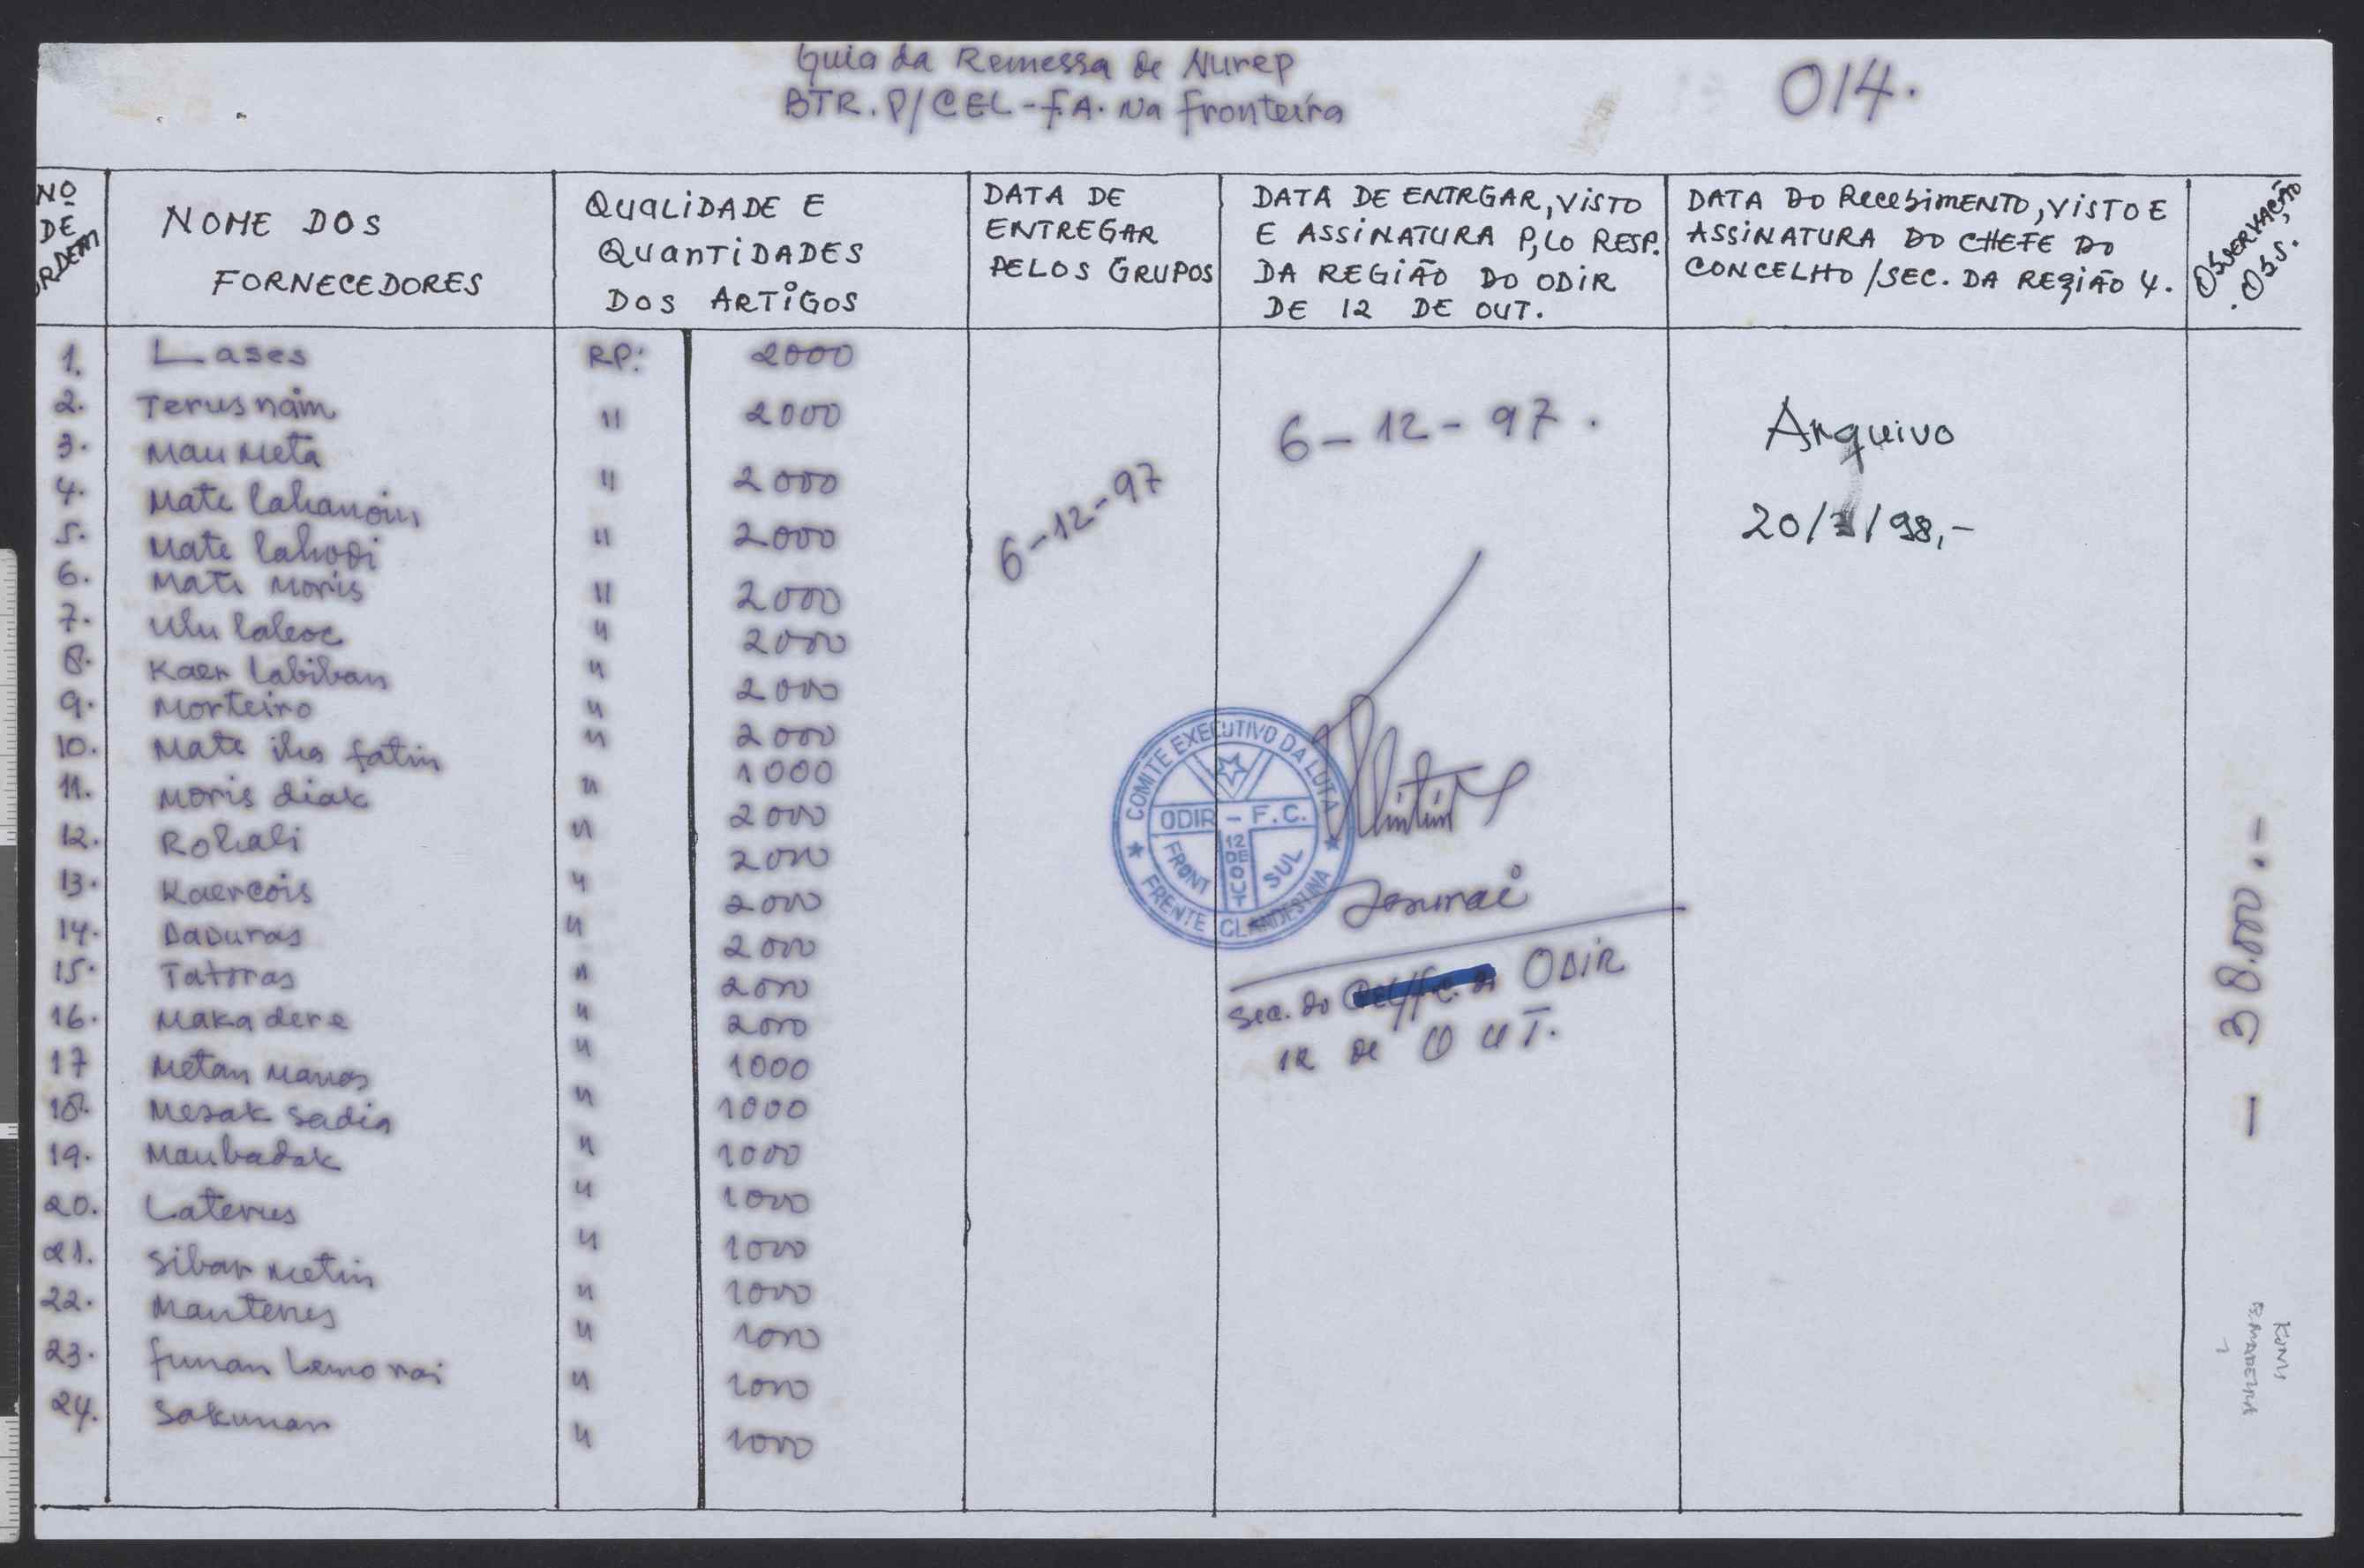 Guia da Remessa de Nurep
BTR. P/CEL-F.A. Na fronteira
014.
Nº DE ORDEM
NOME DOS FORNECEDORES
QUALIDADE E QUANTIDADES DOS ARTIGOS
DATA DE ENTREGAR PELOS GRUPOS
DATA DE ENTRGAR, VISTO E ASSINATURA P,LO RESP. DA REGIÃO DO ODIR DE 12 DE OUT.
DATA DO RECEBIMENTO, VISTO E ASSINATURA DO CHEFE DO CONCELHO/SEC. DA REGIÃO 4.
OBSERVAÇÃO . OBS.
1. Lases RP: 2000
2. Terus nain " 2000
3. Mau Meta " 2000
4. Mate lakanoin " 2000
5. Mate lakodi " 2000
6. Mate Moris " 2000
7. Ulu laleoc " 2000
8. Kaer labiban " 2000
9. Morteiro " 1000
10. Mate iha fatin " 2000
11. Moris diak " 2000
12. Rohali " 2000
13. Kaercois " 2000
14. Daduras " 2000
15. Tatoras " 2000
16. Maka dere " 1000
17 Metan Manas " 1000
18. Mesak sadia " 1000
19. Maubadak " 1000
20. Laterus " 1000
21. Sibar metin " 1000
22. Manterus " 1000
23. funan lemo rai " 1000
24. Sakunar " 1000
6-12-97
6-12-97.
COMITE EXECUTIVO DA LUTA
ODIR - F.C.
FRONT SUL
12 DE OUT
FRENTE CLANDESTINA
Sec. do ODIR
12 de OUT.
Arquivo
20/ /98,-
— 38.000.-